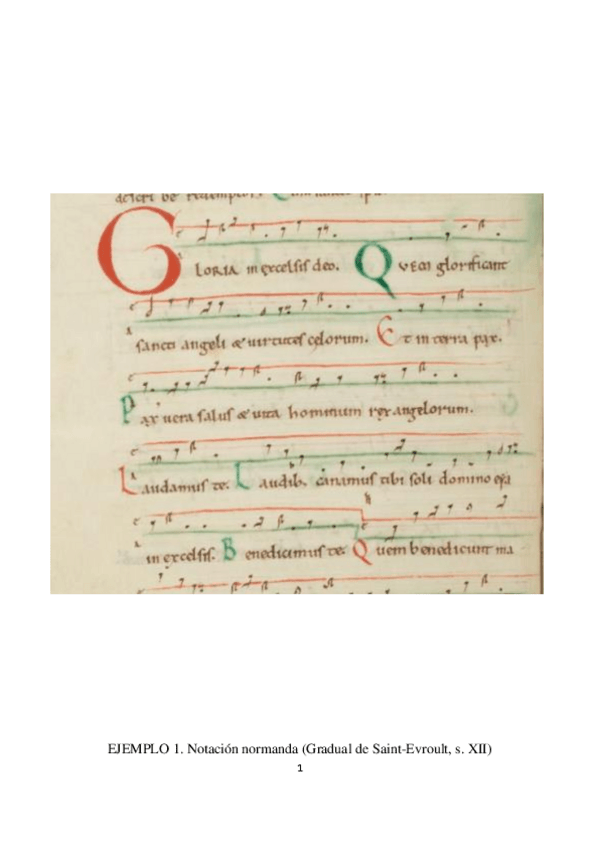 GLORIA in excelsis deo. Quem glorificant
sancti angeli & uirtutes celorum. Et in terra pax.
Pax uera salus & uita hominum rex angelorum.
Laudamus te. Laudib. canamus tibi soli domino
in excelsis. Benedicimus te. Quem benedicunt ma
EJEMPLO 1. Notación normanda (Gradual de Saint-Evroult, s. XII)
1